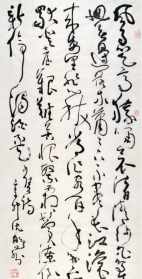 風急天高猿嘯哀渚清沙白鳥飛
迴無邊落木蕭蕭下不盡長江滾滾
來萬里悲秋常作客百年多病獨
登臺艱難苦恨繁霜鬢潦倒
新停濁酒杯